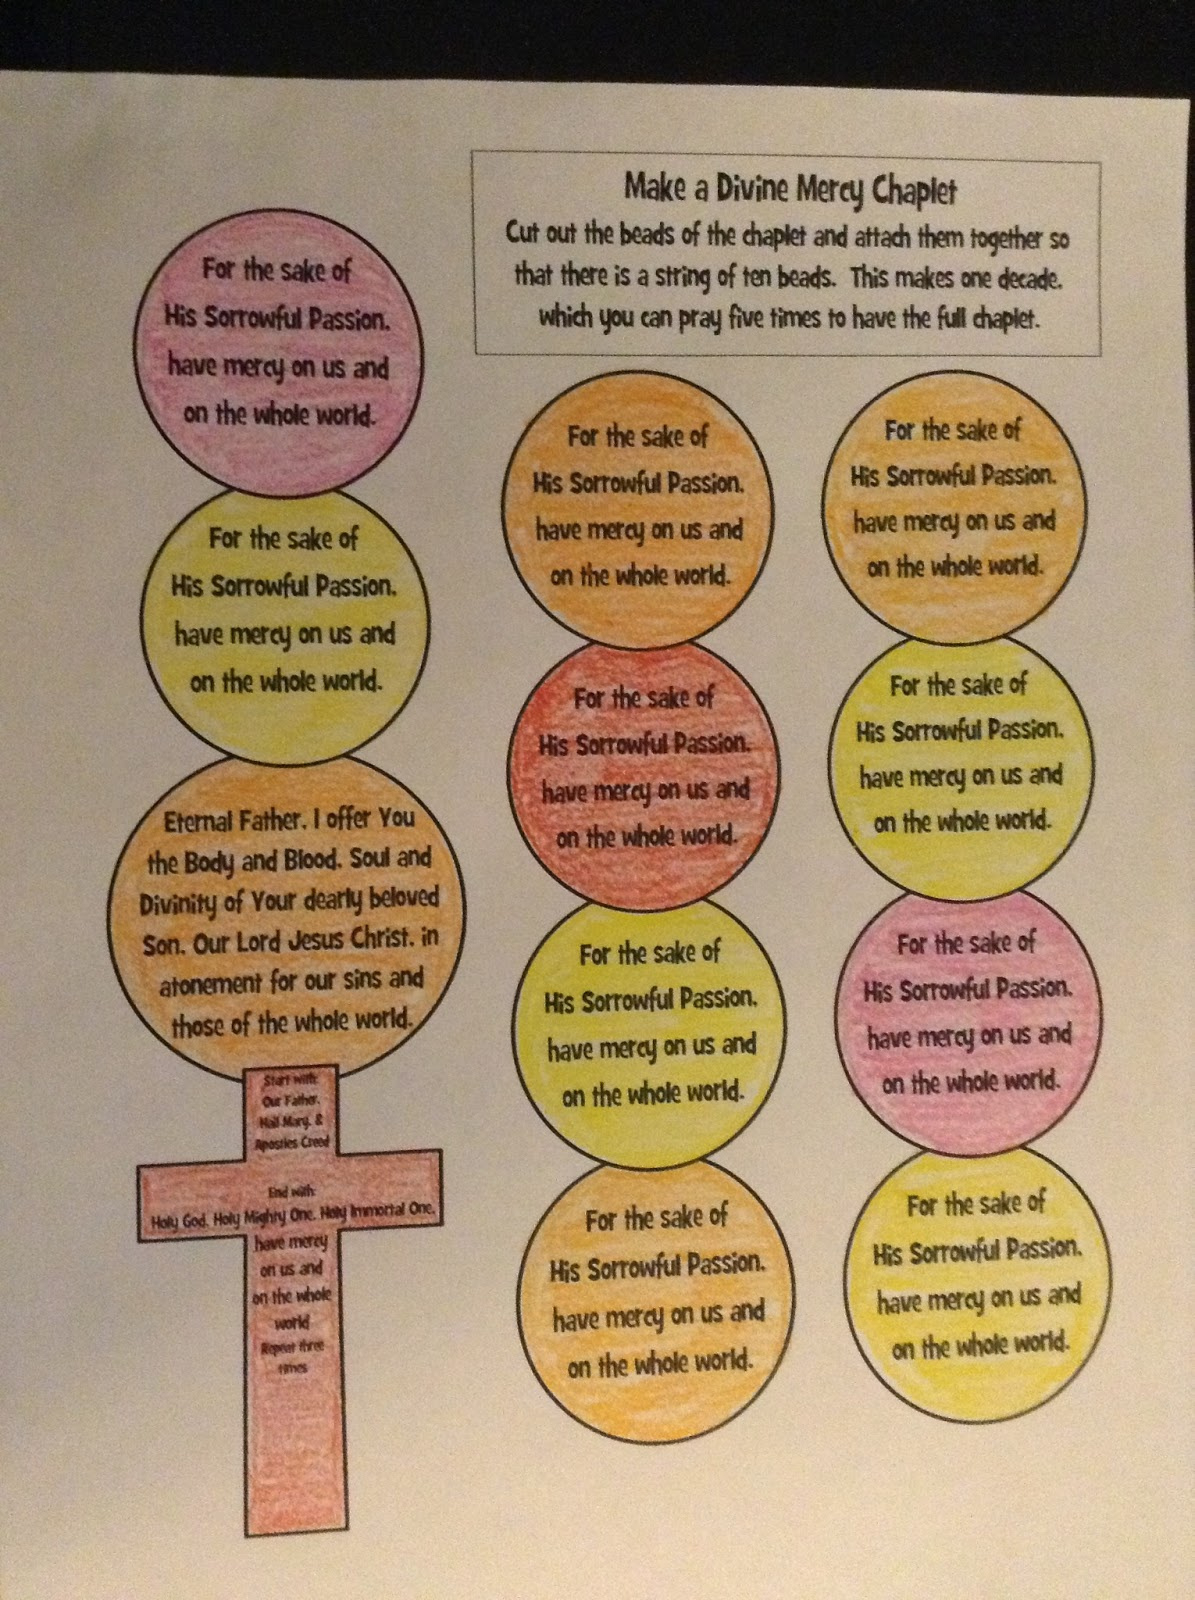 Make a Divine Mercy Chaplet
Cut out the beads of the chaplet and attach them together so
that there is a string of ten beads. This makes one decade,
which you can pray five times to have the full chaplet.
For the sake of
His Sorrowful Passion,
have mercy on us and
on the whole world.
For the sake of
His Sorrowful Passion,
have mercy on us and
on the whole world.
Eternal Father, I offer You
the Body and Blood, Soul and
Divinity of Your dearly beloved
Son, Our Lord Jesus Christ, in
atonement for our sins and
those of the whole world.
Start with:
Our Father,
Hail Mary, &
Apostles Creed
End with:
Holy God, Holy Mighty One, Holy Immortal One,
have mercy
on us and
on the whole
world
Repeat three
times
For the sake of
His Sorrowful Passion,
have mercy on us and
on the whole world.
For the sake of
His Sorrowful Passion,
have mercy on us and
on the whole world.
For the sake of
His Sorrowful Passion,
have mercy on us and
on the whole world.
For the sake of
His Sorrowful Passion,
have mercy on us and
on the whole world.
For the sake of
His Sorrowful Passion,
have mercy on us and
on the whole world.
For the sake of
His Sorrowful Passion,
have mercy on us and
on the whole world.
For the sake of
His Sorrowful Passion,
have mercy on us and
on the whole world.
For the sake of
His Sorrowful Passion,
have mercy on us and
on the whole world.